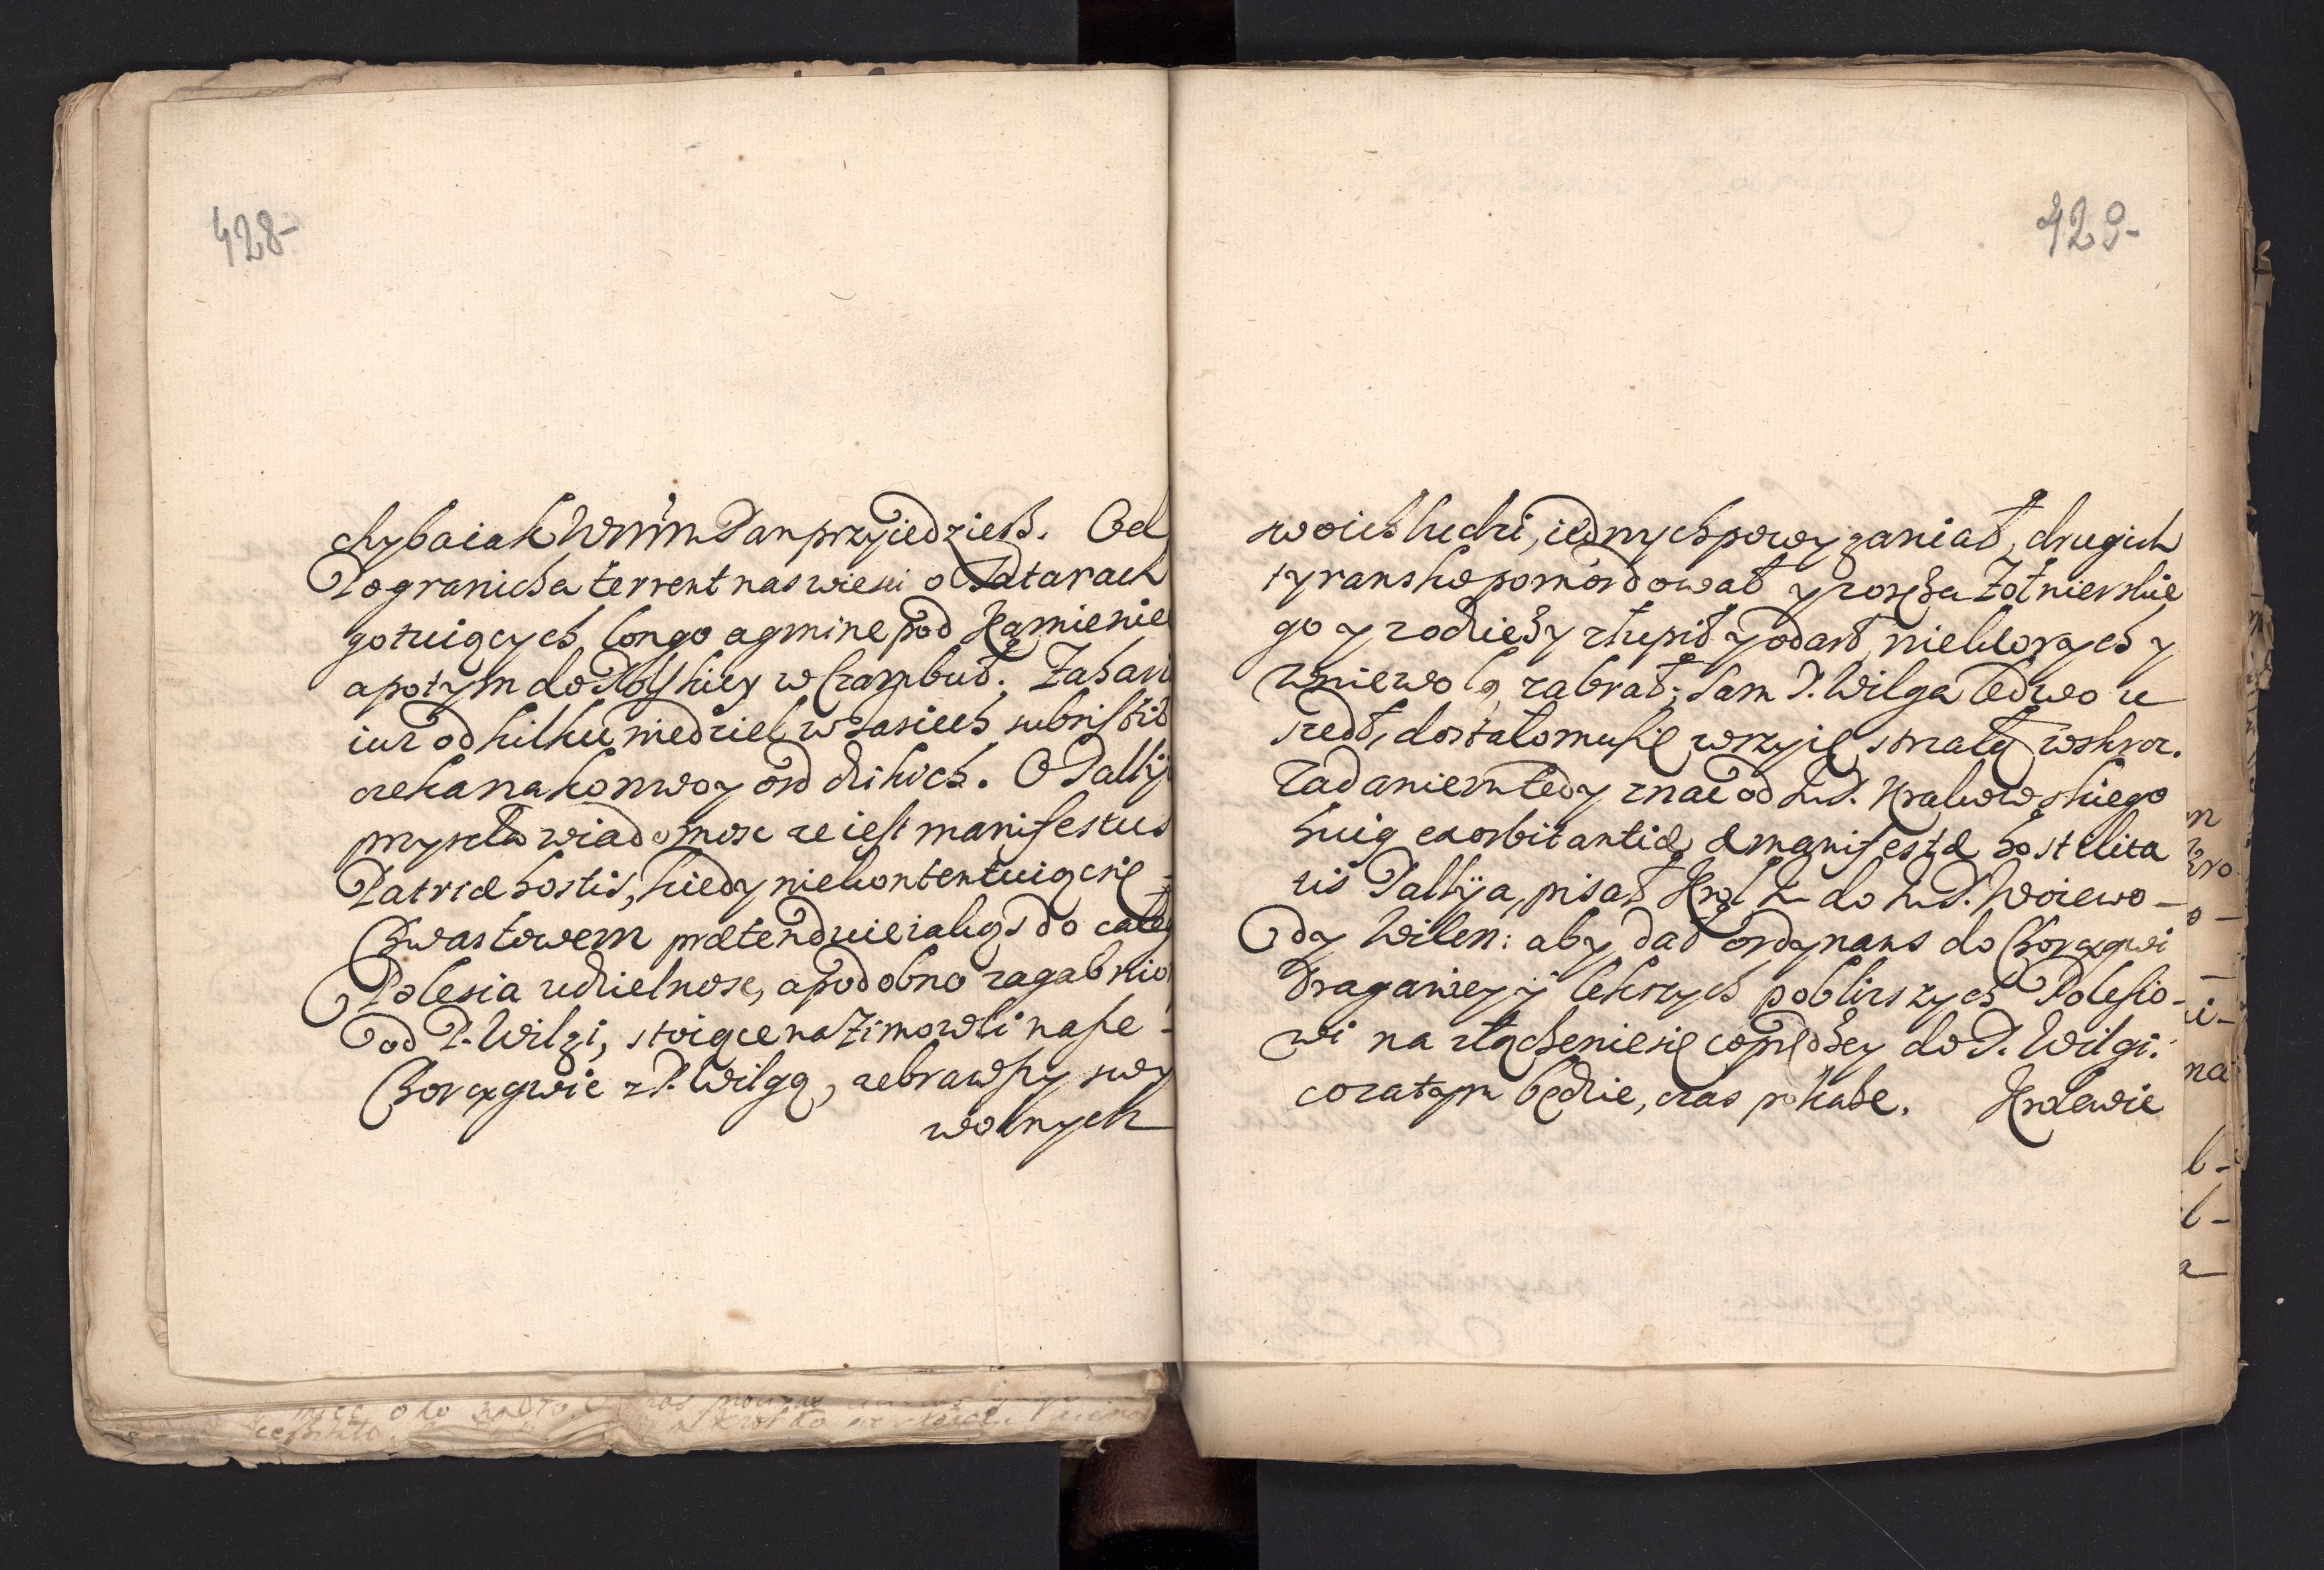 428-
chyba iak WMM Pan przyiedziesz. Od
Pogranicza terrent nas wiesci o Tatarach
gotuiących longo agmine pod Kamienie
a potym do Polskiey w Czambuł. Zaham
iuz od kilku niedziel w Jasiech subsistit
czeka na konwoy ord dzikich. O Paliju
przyszła wiadomosc ze iest manifestus
Patriæ hostis, kiedy niekontentuiąc się
Chwastowem prætenduie iakąs do całeg
Polesia udzielnosc, a podobno zagabnio
od P. Wilgi, stoiące na Zimowli nasze
Chorągwie z P. Wilgą, zebrawszy swy
wolnych
429-
swoich ludzi, iednych powyzaniał, drugich
tyransko pomordował y roszba Zołnierskie
go y zodzieży złupił y odarł, niektorych y
w niewolą zabrał; sam P. Wilga ledwo u
szedł, dostało mu się w szyię strzałą wskroz.
Zadaniem tedy znac od Im P. Krakowskiego
huig exorbitantiæ & manifestæ hostilita
tis Palija, pisał Krol Im do Im P. Woiewo-
dy Wilen: aby dał ordynans do Chorągwi
Draganiey y lekszych poblizszych Polesio-
wi na złączenie się co prędzey do P. Wilgi.
co zatym będzie, czas pokaże. Krolewie